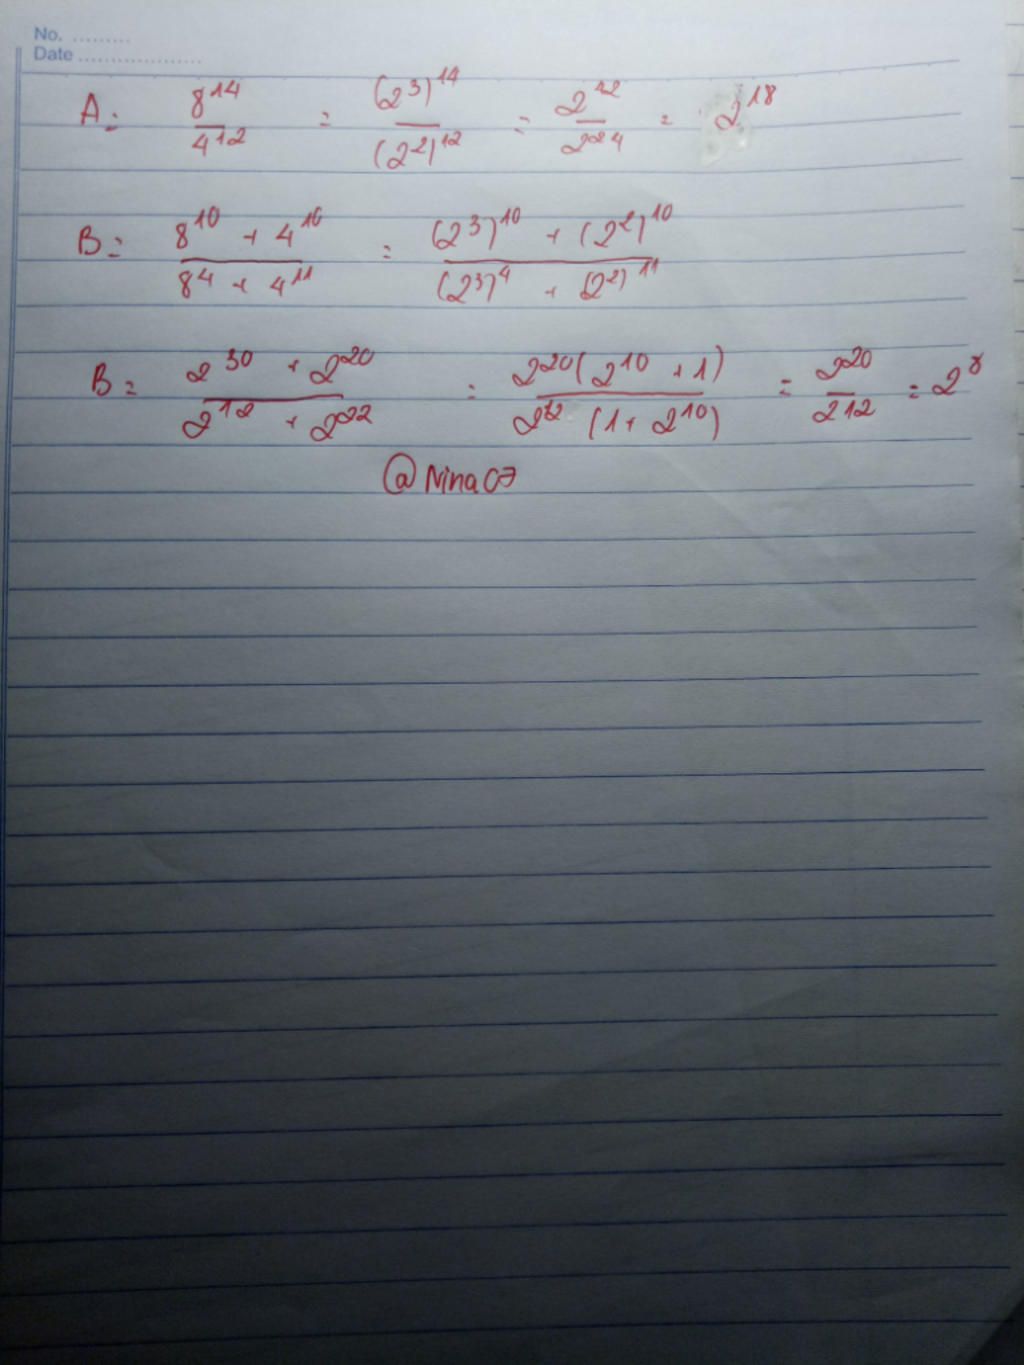 No. .........
Date ...................
A = 8^14 / 4^12 = (2^3)^14 / (2^2)^12 = 2^42 / 2^24 = 2^18
B = 8^10 + 4^10 / 8^4 + 4^11 = (2^3)^10 + (2^2)^10 / (2^3)^4 + (2^2)^11
B = 2^30 + 2^20 / 2^12 + 2^22 = 2^20(2^10 + 1) / 2^12 (1 + 2^10) = 2^20 / 2^12 = 2^8
@Nina07